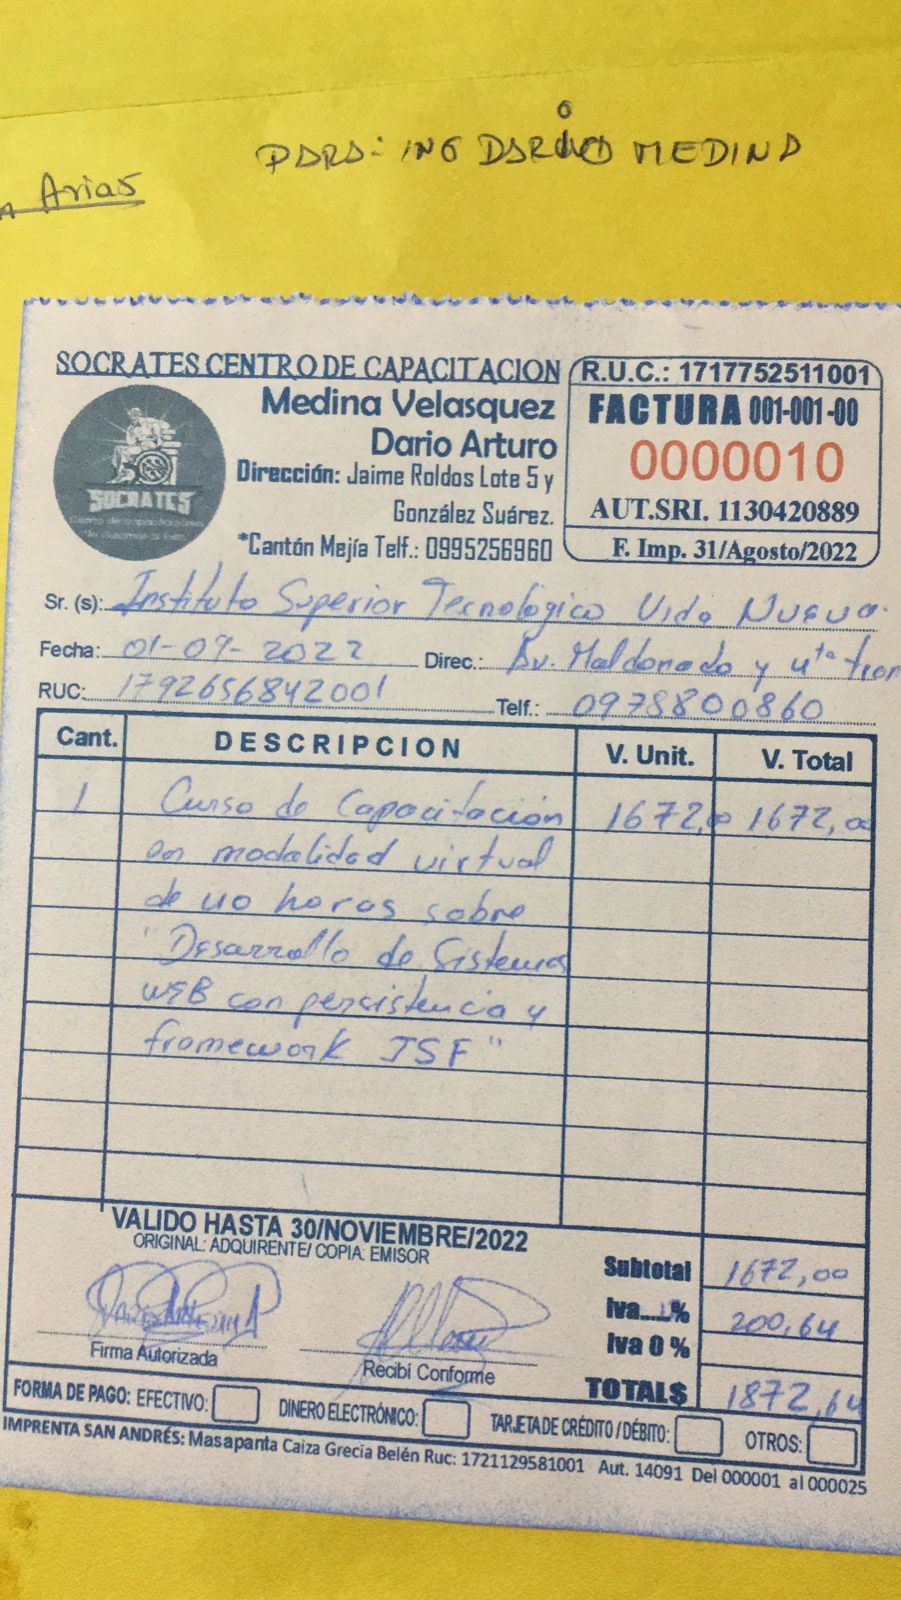 PARA: ING DARIO MEDINA
Arias
SOCRATES CENTRO DE CAPACITACION
Medina Velasquez
Dario Arturo
Dirección: Jaime Roldos Lote 5 y
González Suárez.
*Cantón Mejía Telf.: 0995256960
SOCRATES
R.U.C.: 1717752511001
FACTURA 001-001-00
0000010
AUT.SRI. 1130420889
F. Imp. 31/Agosto/2022
Sr. (s): Instituto Superior Tecnológico Vida Nueva.
Fecha: 01-09-2022 Direc.: Av. Maldonado y 4ta tran
RUC: 1792656842001 Telf.: 0978800860
Cant. DESCRIPCION V. Unit. V. Total
1 Curso de Capacitación 1672,00 1672,00
en modalidad virtual
de 40 horas sobre
"Desarrollo de Sistemas
WEB con persistencia y
framework JSF"
VALIDO HASTA 30/NOVIEMBRE/2022
ORIGINAL: ADQUIRENTE/ COPIA: EMISOR
Subtotal 1672,00
Iva....% 200,64
Iva 0 %
TOTAL$ 1872,64
Firma Autorizada
Recibí Conforme
FORMA DE PAGO: EFECTIVO: DINERO ELECTRÓNICO: TARJETA DE CRÉDITO / DÉBITO: OTROS:
IMPRENTA SAN ANDRÉS: Masapanta Caiza Grecia Belén Ruc: 1721129581001 Aut. 14091 Del 000001 al 000025